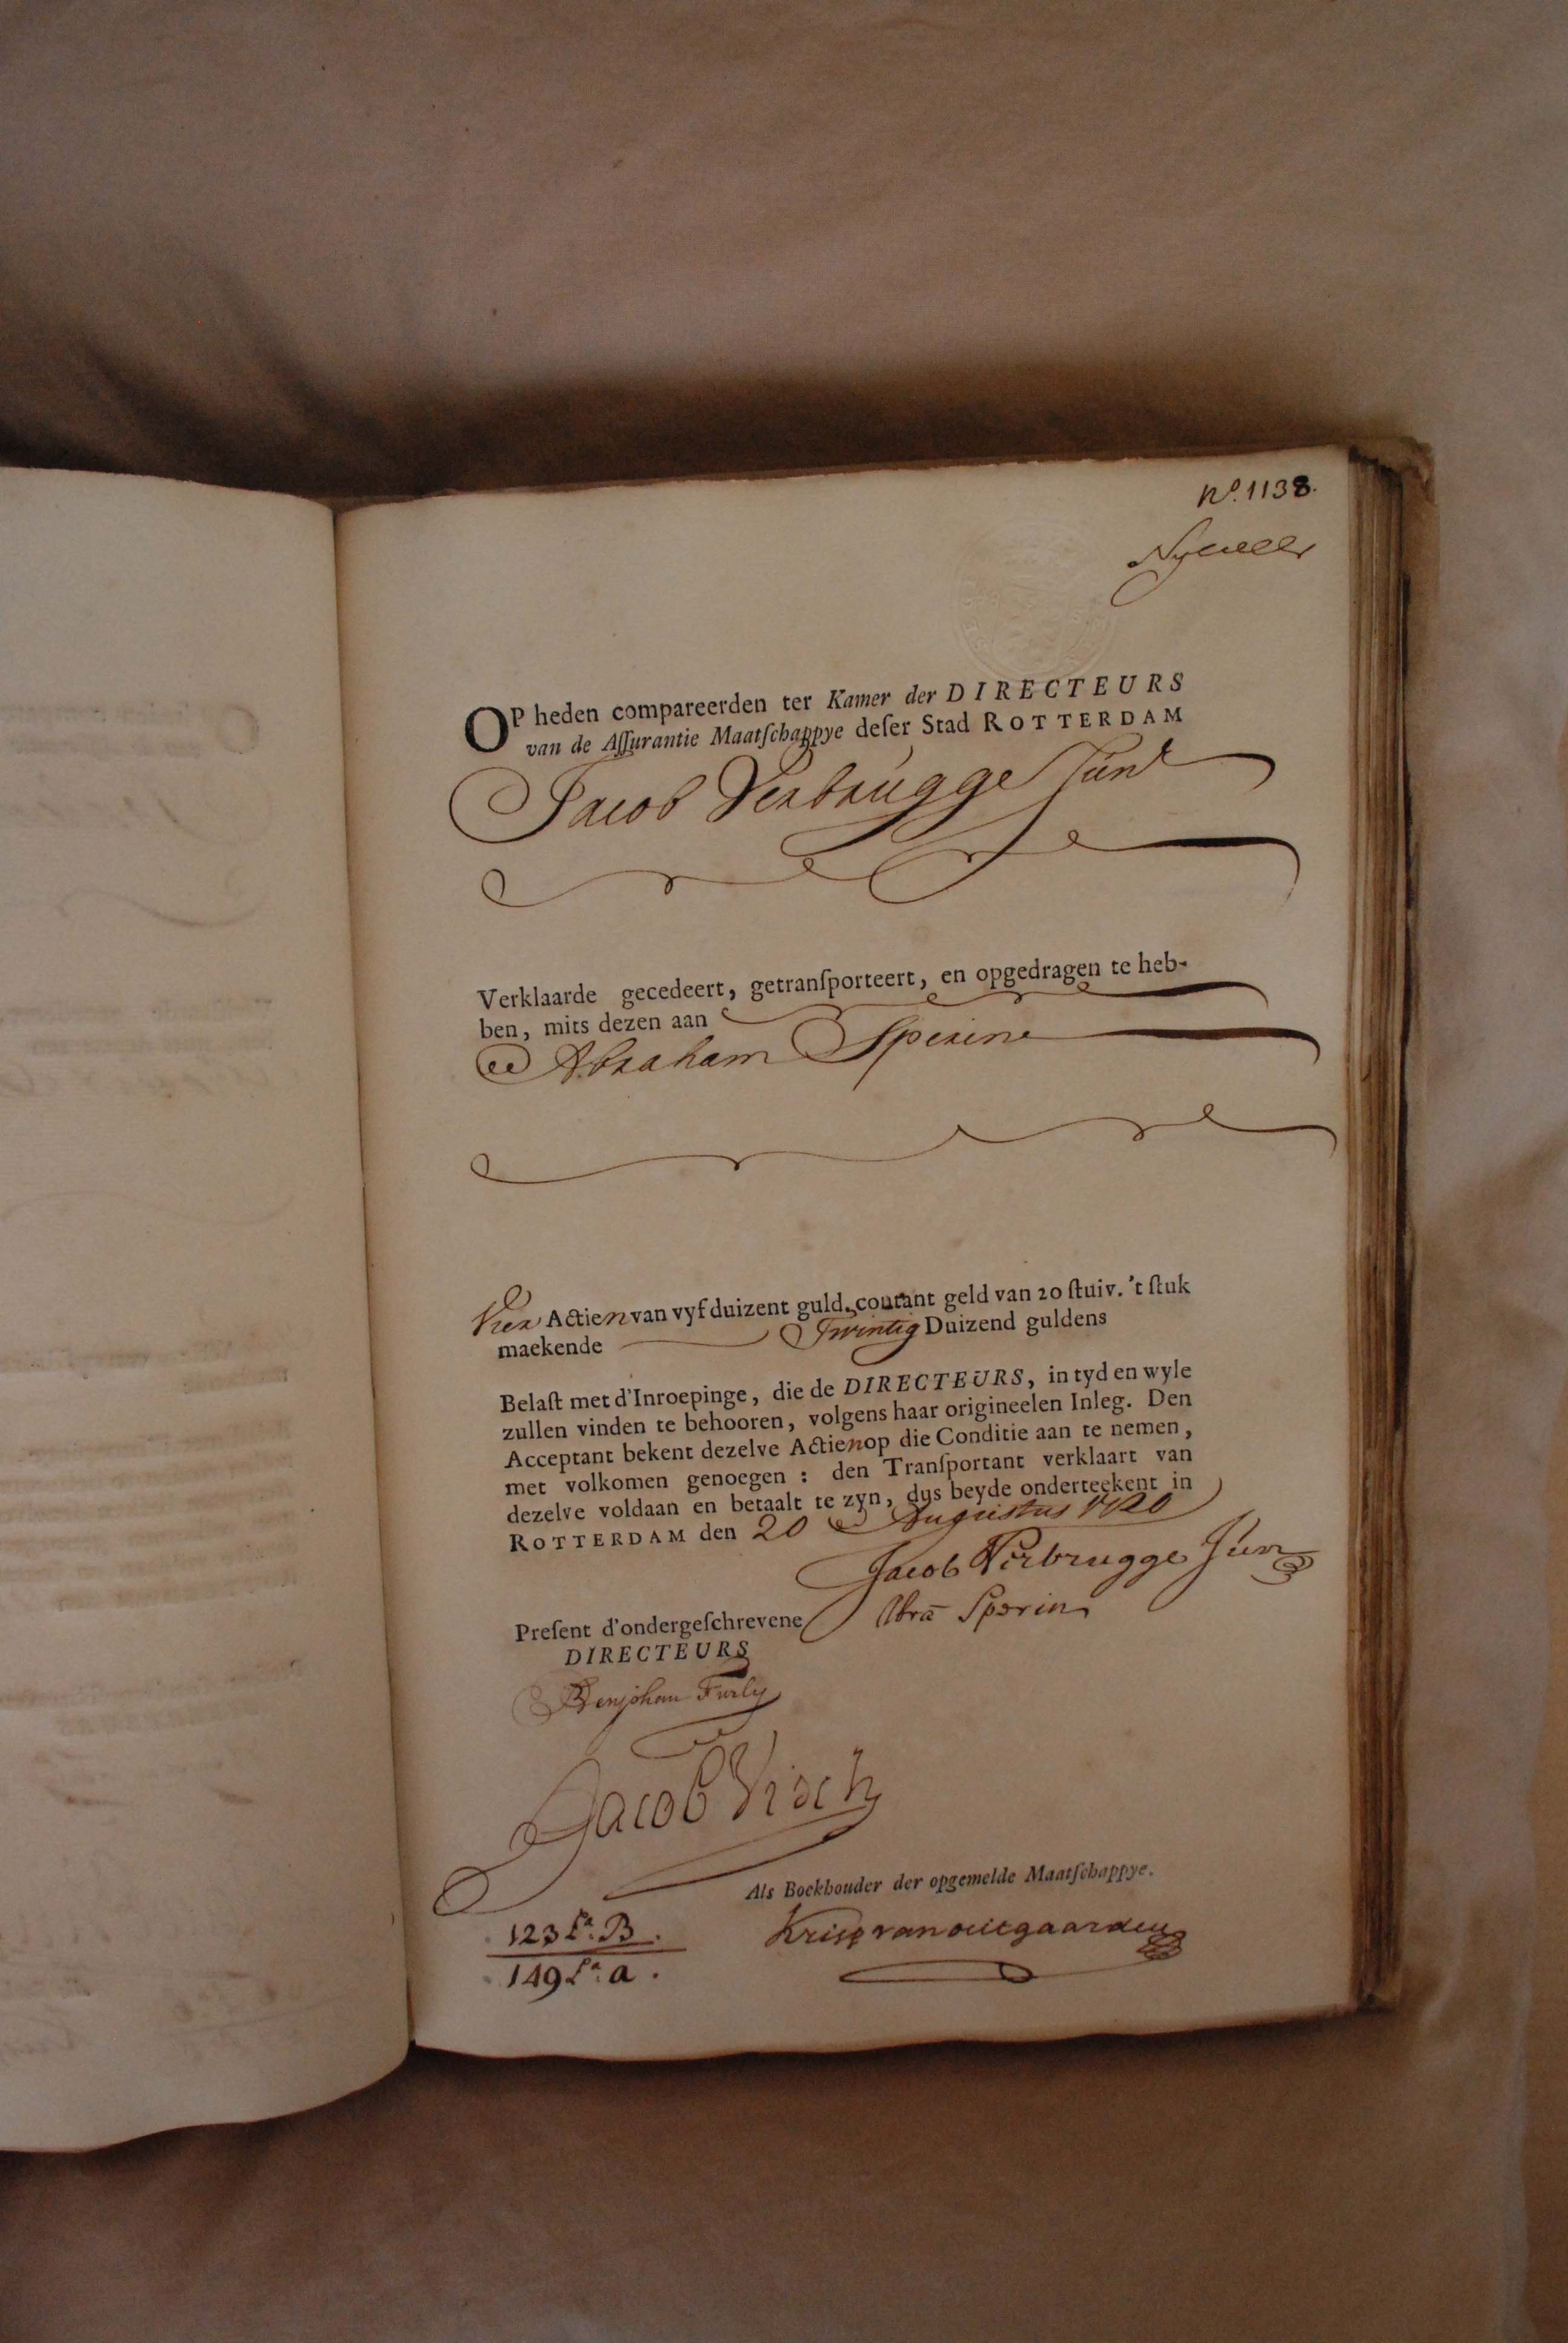 No. 1138.
OP heden compareerden ter Kamer der DIRECTEURS
van de Aſſurantie Maatſchappye deſer Stad ROTTERDAM
Jacob Verbrugge Junr
Verklaarde gecedeert, getranſporteert, en opgedragen te heb-
ben, mits dezen aan
Abraham Sperine
Vier Actien van vyf duizent guld. courant geld van 20 ſtuiv. 't ſtuk
maekende Twintig Duizend guldens
Belaſt met d'Inroepinge, die de DIRECTEURS, in tyd en wyle
zullen vinden te behooren, volgens haar origineelen Inleg. Den
Acceptant bekent dezelve Actien op die Conditie aan te nemen,
met volkomen genoegen : den Tranſportant verklaart van
dezelve voldaan en betaalt te zyn, dus beyde onderteekent in
ROTTERDAM den 20 Augustus 1720
Jacob Verbrugge Jun
Abra Sperin
Preſent d'ondergeſchrevene
DIRECTEURS
Benjohan Furly
Jacob Visch
Als Boekhouder der opgemelde Maatſchappye.
123 La. B.
149 La. a.